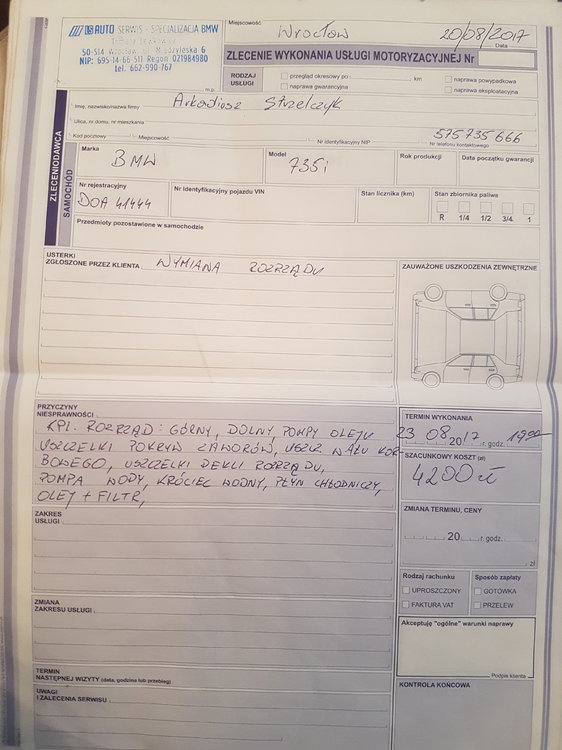 LS AUTO SERWIS - SPECJALIZACJA BMW
50-514 Wrocław, ul. Międzyleska 6
NIP: 695-14-66-511 Regon 021984980
tel. 662-990-767
m.p.
Miejscowość
Wrocław
20/08/2017
Data
ZLECENIE WYKONANIA USŁUGI MOTORYZACYJNEJ Nr
RODZAJ USŁUGI
przegląd okresowy po
km
naprawa powypadkowa
naprawa gwarancyjna
naprawa eksploatacyjna
ZLECENIODAWCA
Imię, nazwisko/nazwa firmy
Arkadiusz Strzelczyk
Ulica, nr domu, nr mieszkania
Kod pocztowy
Miejscowość
Nr identyfikacyjny NIP
575735666
Nr telefonu kontaktowego
SAMOCHÓD
Marka
BMW
Model
735i
Rok produkcji
Data początku gwarancji
Nr rejestracyjny
DOA 41444
Nr identyfikacyjny pojazdu VIN
Stan licznika (km)
Stan zbiornika paliwa
R 1/4 1/2 3/4 1
Przedmioty pozostawione w samochodzie
USTERKI
ZGŁOSZONE PRZEZ KLIENTA
WYMIANA ROZRZĄDU
ZAUWAŻONE USZKODZENIA ZEWNĘTRZNE
PRZYCZYNY
NIESPRAWNOŚCI
KPL. ROZRZĄD: GÓRNY, DOLNY, POMPY OLEJU
USZCZELKI POKRYW ZAWORÓW, USZCZ WAŁU KOR-
BOWEGO, USZCZELKI DEKLI ROZRZĄDU,
POMPA WODY, KRÓCIEC WODNY, PŁYN CHŁODNICZY,
OLEJ + FILTR,
TERMIN WYKONANIA
23 08 2017 r. godz. 19⁰⁰
SZACUNKOWY KOSZT (zł)
4200 zł
ZMIANA TERMINU, CENY
20 r. godz.
zł
ZAKRES
USŁUGI
Rodzaj rachunku
UPROSZCZONY
FAKTURA VAT
Sposób zapłaty
GOTÓWKA
PRZELEW
ZMIANA
ZAKRESU USŁUGI
Akceptuję "ogólne" warunki naprawy
Podpis klienta
TERMIN
NASTĘPNEJ WIZYTY (data, godzina lub przebieg)
UWAGI
I ZALECENIA SERWISU
KONTROLA KOŃCOWA